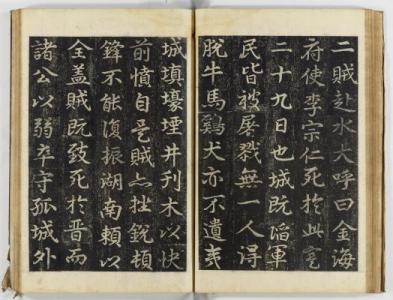 二賊赴水大呼曰金海
府使李宗仁死於此寔
二十九日也城既陷軍
民皆被屠戮無一人得
脫牛馬鷄犬亦不遺夷
城填壕堙井刊木以快
前憤自是賊亦挫銳頓
鋒不能復振湖南賴以
全盖賊既致死於晋而
諸公以弱卒守孤城外